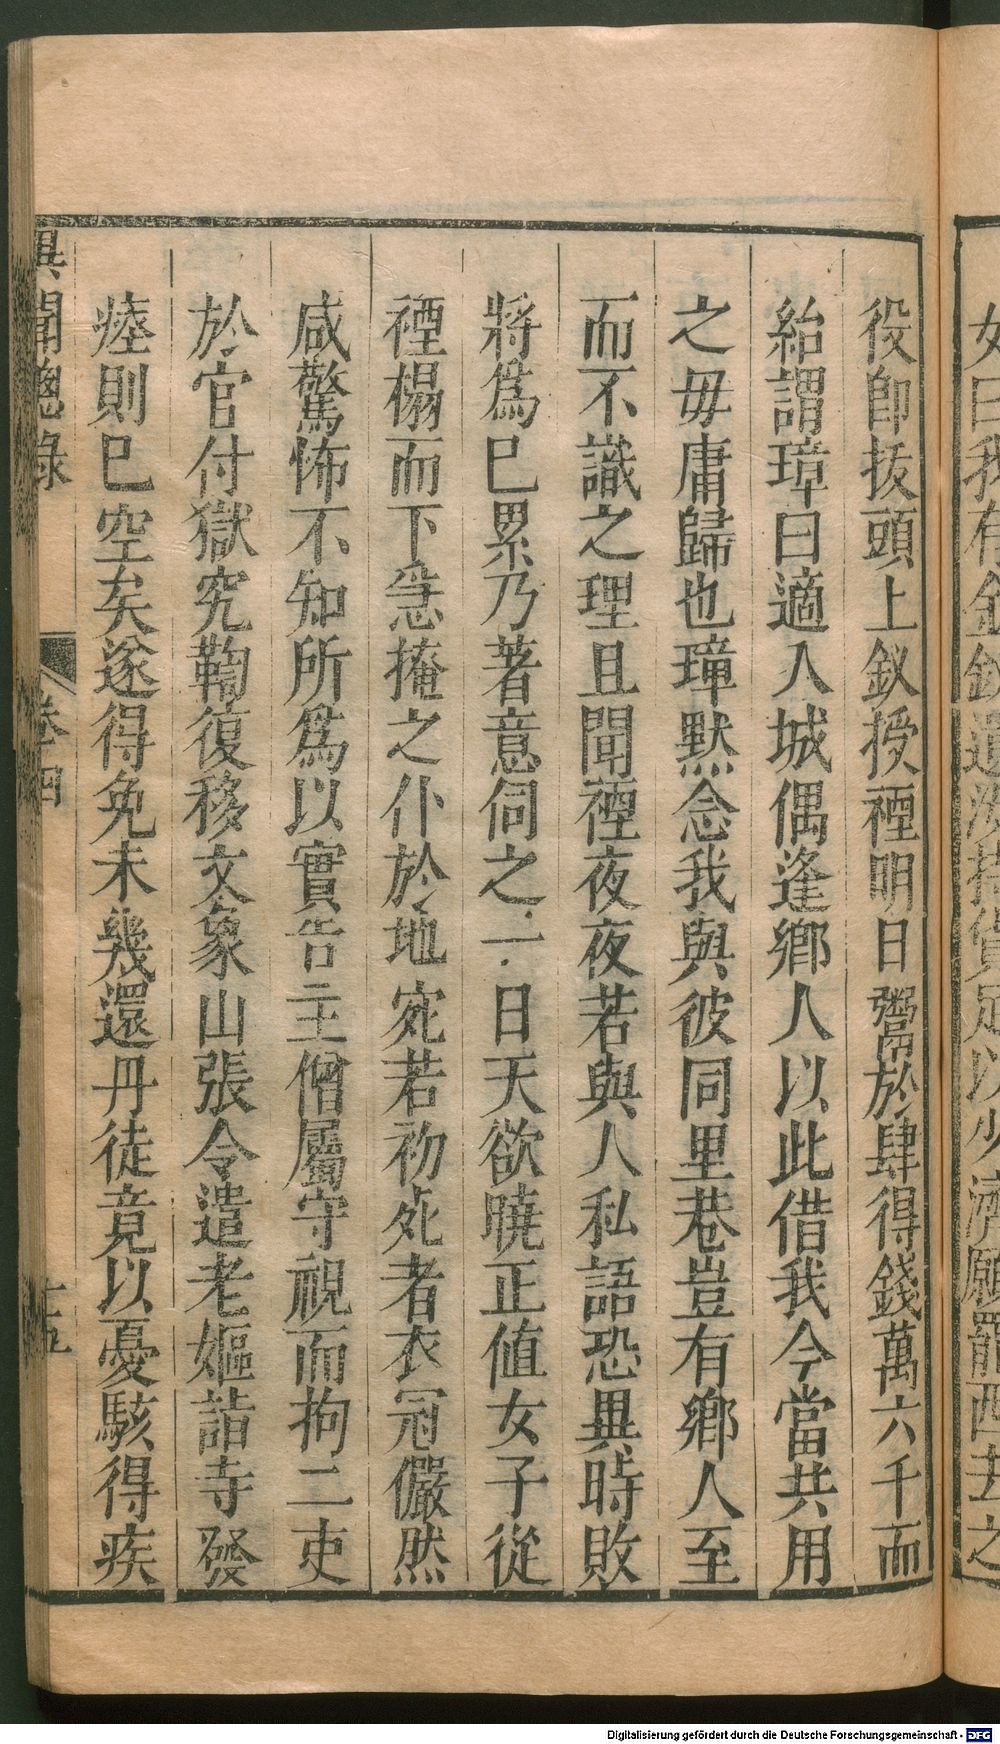 役卽拔頭上釵授禋明日鬻於肆得錢萬六千而
紿謂璋曰適入城偶逢鄉人以此借我今當共用
之毋庸歸也璋默念我與彼同里巷豈有鄉人至
而不識之理且聞禋夜夜若與人私語恐異時敗
將爲巳累乃著意伺之一日天欲曉正値女子從
禋榻而下急掩之仆於地宛若初死者衣冠儼然
咸驚怖不知所爲以實告主僧屬守視而拘二吏
於官付獄究鞫復移文象山張令遣老嫗詣寺發
瘞則巳空矣遂得免未幾還丹徒竟以憂駭得疾
異聞總錄
卷四
十五
Digitalisierung gefördert durch die Deutsche Forschungsgemeinschaft - DFG